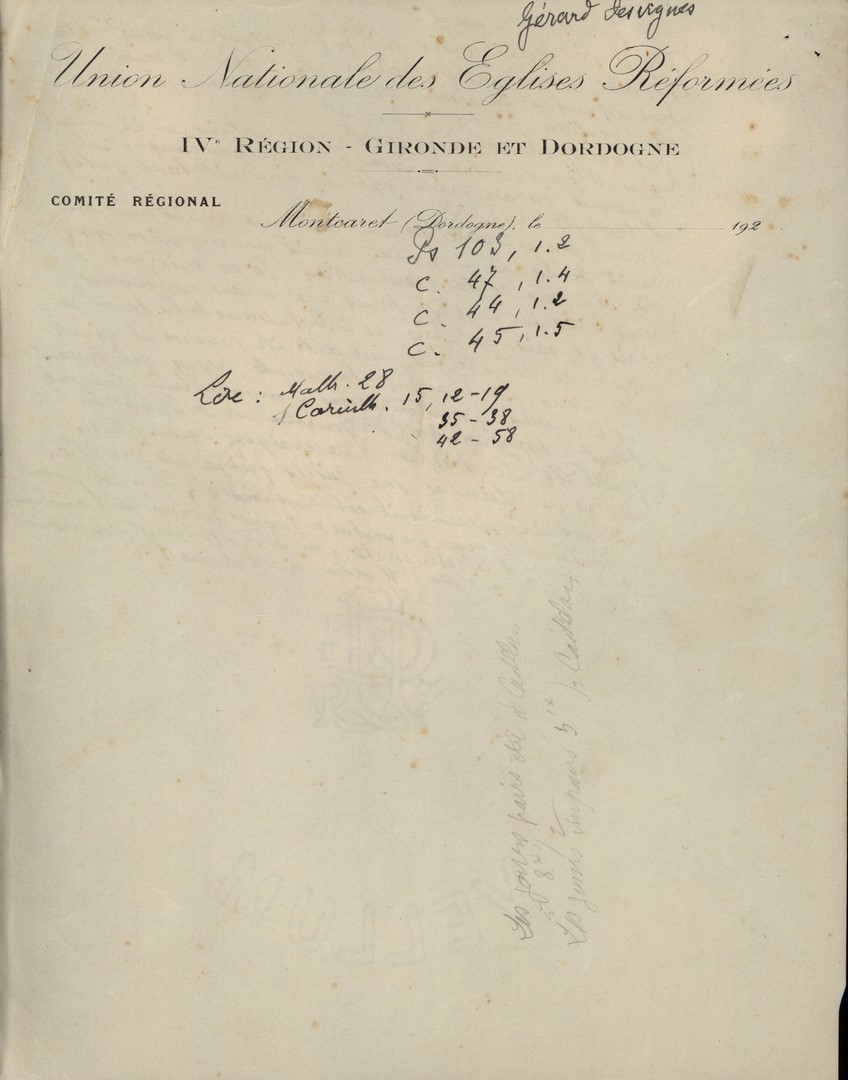 Gérard Desvignes
Union Nationale des Eglises Réformées
IVᵉ RÉGION - GIRONDE ET DORDOGNE
COMITÉ RÉGIONAL
Montcaret (Dordogne), le 192
Ps 103, 1.2
C. 47, 1.4
C. 44, 1.2
C. 45, 1.5
Lire : Matth. 28
I Corinth. 15, 12-19
35-38
42-58
Les jours pairs
8 h 1/2
Les jours impairs 5